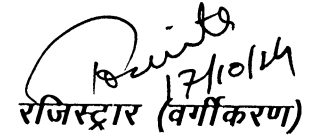 17/10/14
रजिस्ट्रार (वर्गीकरण)